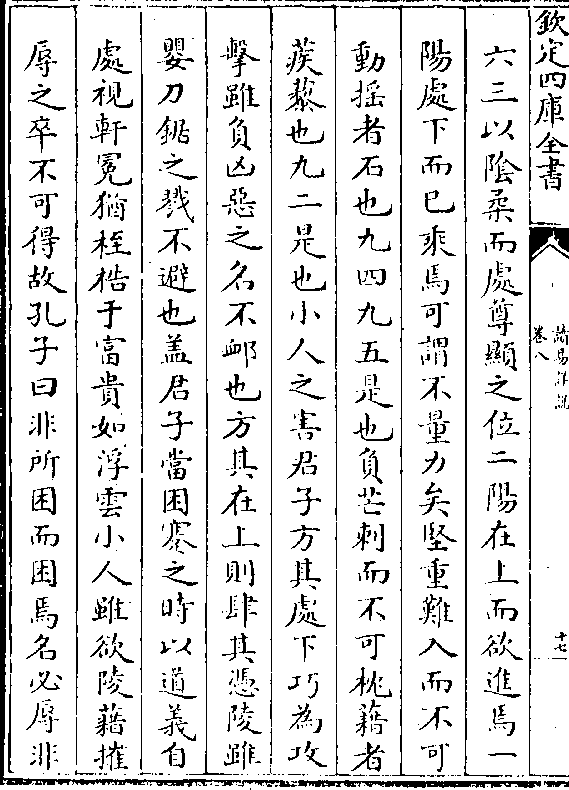 欽定四庫全書
讀易詳說
卷八
十七
六三以隂柔而處尊顯之位二陽在上而欲進焉一
陽處下而已乘焉可謂不量力矣堅重難入而不可
動揺者石也九四九五是也負芒刺而不可枕藉者
蒺藜也九二是也小人之害君子方其處下巧為攻
擊雖負凶惡之名不䘏也方其在上則肆其憑陵雖
嬰刀鋸之戮不避也盖君子當困蹇之時以道義自
處視軒冕猶桎梏于富貴如浮雲小人雖欲陵藉摧
辱之卒不可得故孔子曰非所困而困焉名必辱非